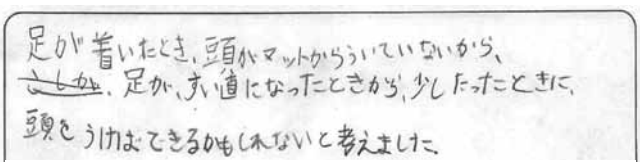 足が着いたとき、頭がマットからういていないから、
足が、すい直になったときから、少したったときに、
頭をうけばできるかもしれないと考えました。